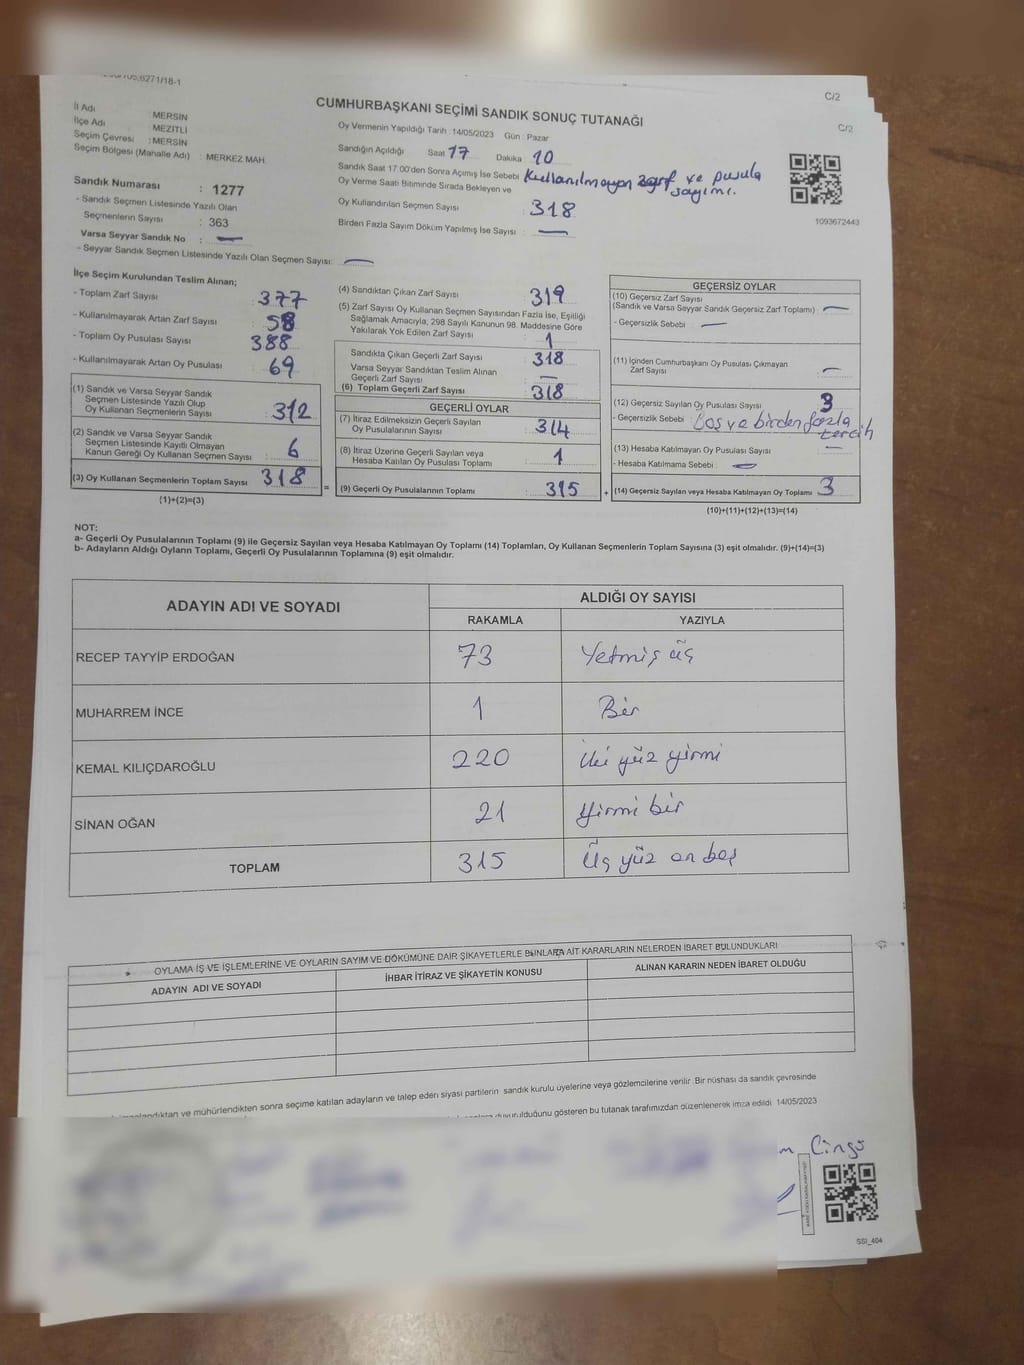 C/2
C/2
CUMHURBAŞKANI SEÇİMİ SANDIK SONUÇ TUTANAĞI
İl Adı : MERSİN
İlçe Adı : MEZİTLİ
Seçim Çevresi : MERSİN
Seçim Bölgesi (Mahalle Adı) : MERKEZ MAH.
Sandık Numarası : 1277
- Sandık Seçmen Listesinde Yazılı Olan
Seçmenlerin Sayısı : 363
Varsa Seyyar Sandık No : —
- Seyyar Sandık Seçmen Listesinde Yazılı Olan Seçmen Sayısı: —
Oy Vermenin Yapıldığı Tarih : 14/05/2023 Gün : Pazar
Sandığın Açıldığı Saat 17 Dakika 10
Sandık Saat 17.00'den Sonra Açımış İse Sebebi Kullanılmayan zarf ve pusula
Oy Verme Saati Bitiminde Sırada Bekleyen ve sayımı.
Oy Kullandırılan Seçmen Sayısı : 318
Birden Fazla Sayım Döküm Yapılmış İse Sayısı : —
1093672443
İlçe Seçim Kurulundan Teslim Alınan;
- Toplam Zarf Sayısı : 377
- Kullanılmayarak Artan Zarf Sayısı : 58
- Toplam Oy Pusulası Sayısı : 388
- Kullanılmayarak Artan Oy Pusulası : 69
(1) Sandık ve Varsa Seyyar Sandık
Seçmen Listesinde Yazılı Olup
Oy Kullanan Seçmenlerin Sayısı : 312
(2) Sandık ve Varsa Seyyar Sandık
Seçmen Listesinde Kayıtlı Olmayan
Kanun Gereği Oy Kullanan Seçmen Sayısı : 6
(3) Oy Kullanan Seçmenlerin Toplam Sayısı : 318
(1)+(2)=(3)
=
(4) Sandıktan Çıkan Zarf Sayısı : 319
(5) Zarf Sayısı Oy Kullanan Seçmen Sayısından Fazla İse, Eşitliği
Sağlamak Amacıyla, 298 Sayılı Kanunun 98. Maddesine Göre
Yakılarak Yok Edilen Zarf Sayısı : 1
Sandıkta Çıkan Geçerli Zarf Sayısı : 318
Varsa Seyyar Sandıktan Teslim Alınan
Geçerli Zarf Sayısı : —
(6) Toplam Geçerli Zarf Sayısı : 318
GEÇERLİ OYLAR
(7) İtiraz Edilmeksizin Geçerli Sayılan
Oy Pusulalarının Sayısı : 314
(8) İtiraz Üzerine Geçerli Sayılan veya
Hesaba Katılan Oy Pusulası Toplamı : 1
(9) Geçerli Oy Pusulalarının Toplamı : 315
+
GEÇERSİZ OYLAR
(10) Geçersiz Zarf Sayısı
(Sandık ve Varsa Seyyar Sandık Geçersiz Zarf Toplamı) : —
- Geçersizlik Sebebi : —
(11) İçinden Cumhurbaşkanı Oy Pusulası Çıkmayan
Zarf Sayısı : —
(12) Geçersiz Sayılan Oy Pusulası Sayısı : 3
- Geçersizlik Sebebi : Boş ve birden fazla
tercih
(13) Hesaba Katılmayan Oy Pusulası Sayısı : —
- Hesaba Katılmama Sebebi : —
(14) Geçersiz Sayılan veya Hesaba Katılmayan Oy Toplamı : 3
(10)+(11)+(12)+(13)=(14)
NOT:
a- Geçerli Oy Pusulalarının Toplamı (9) ile Geçersiz Sayılan veya Hesaba Katılmayan Oy Toplamı (14) Toplamları, Oy Kullanan Seçmenlerin Toplam Sayısına (3) eşit olmalıdır. (9)+(14)=(3)
b- Adayların Aldığı Oyların Toplamı, Geçerli Oy Pusulalarının Toplamına (9) eşit olmalıdır.
ADAYIN ADI VE SOYADI ALDIĞI OY SAYISI
RAKAMLA YAZIYLA
RECEP TAYYİP ERDOĞAN 73 Yetmiş üç
MUHARREM İNCE 1 Bir
KEMAL KILIÇDAROĞLU 220 iki yüz yirmi
SİNAN OĞAN 21 Yirmi bir
TOPLAM 315 Üç yüz on beş
OYLAMA İŞ VE İŞLEMLERİNE VE OYLARIN SAYIM VE DÖKÜMÜNE DAİR ŞİKAYETLERLE BUNLARA AİT KARARLARIN NELERDEN İBARET BULUNDUKLARI
ADAYIN ADI VE SOYADI İHBAR İTİRAZ VE ŞİKAYETİN KONUSU ALINAN KARARIN NEDEN İBARET OLDUĞU
ve mühürlendikten sonra seçime katılan adayların ve talep eden siyasi partilerin sandık kurulu üyelerine veya gözlemcilerine verilir. Bir nüshası da sandık çevresinde
duyurulduğunu gösteren bu tutanak tarafımızdan düzenlenerek imza edildi. 14/05/2023
SSI_404